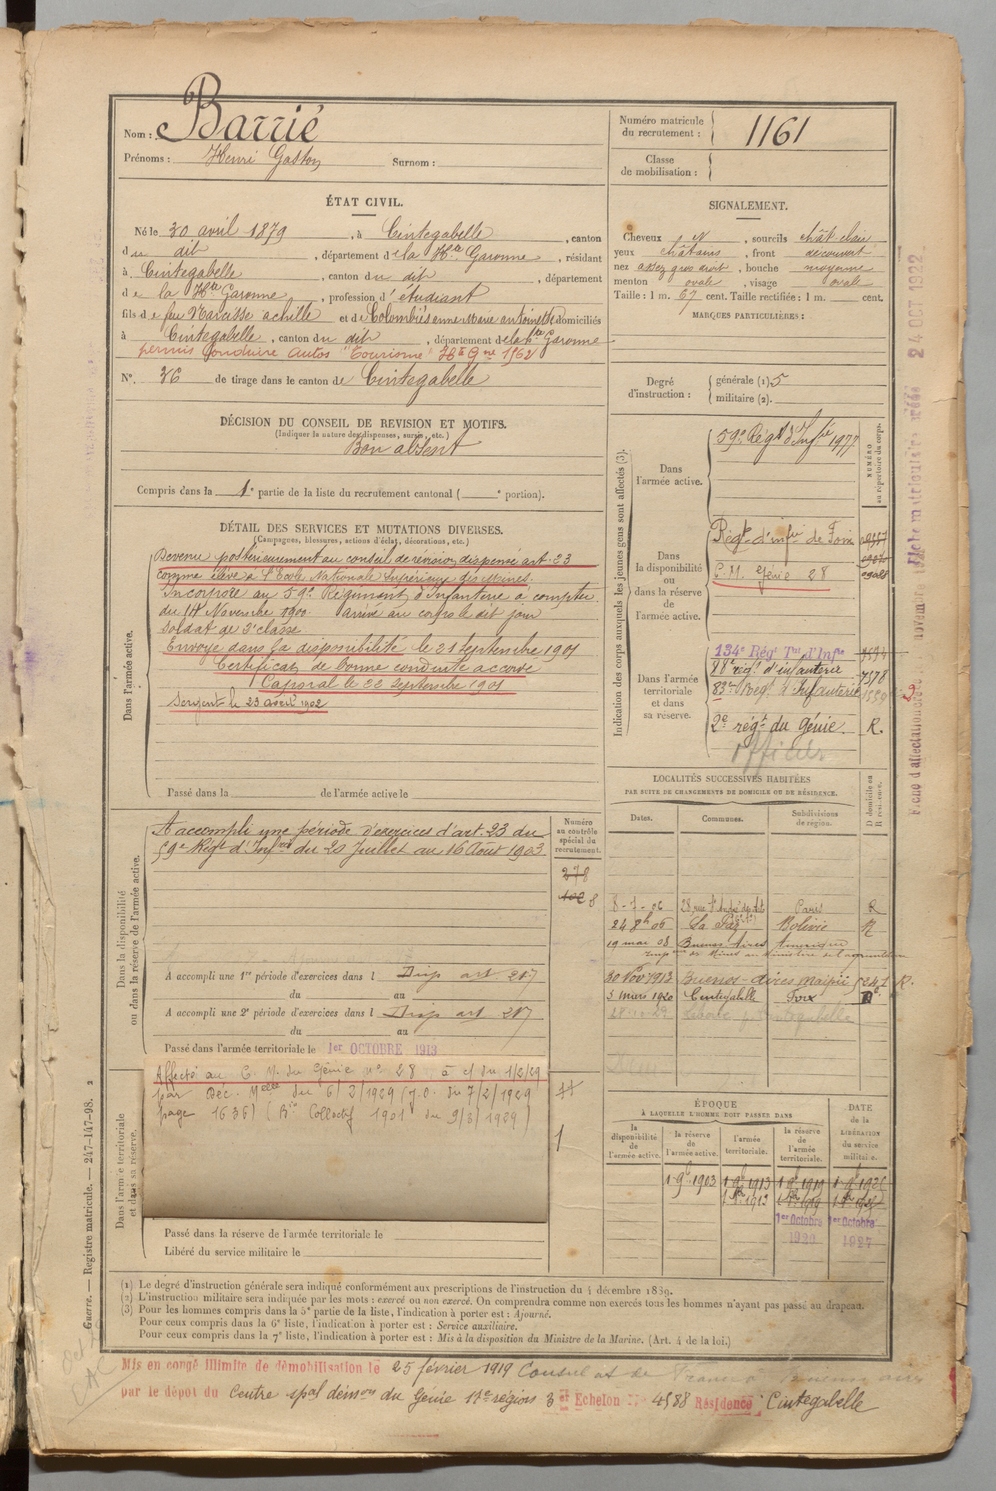 Nom : Barrié
Prénoms : Henri Gaston Surnom :
Numéro matricule du recrutement : 1161
Classe de mobilisation :
ÉTAT CIVIL.
Né le 30 avril 1879, à Cintegabelle, canton
du dit, département de la Hte Garonne, résidant
à Cintegabelle, canton du dit, département
de la Hte Garonne, profession d'étudiant
fils de feu Narcisse achille et de Colombiés anne Marie antoinette domiciliés
à Cintegabelle, canton du dit, département de la hte Garonne
permis conduire autos "Tourisme" Hte Gne 1962
No. 36 de tirage dans le canton de Cintegabelle
SIGNALEMENT.
Cheveux N, sourcils chât. clair
yeux châtains, front découvert
nez assez gros droit, bouche moyenne
menton ovale, visage ovale
Taille : 1 m. 67 cent. Taille rectifiée : 1 m. cent.
MARQUES PARTICULIÈRES :
Degré d'instruction : générale (1) 5
militaire (2).
DÉCISION DU CONSEIL DE REVISION ET MOTIFS.
(Indiquer la nature des dispenses, sursis, etc.)
Bon absent
Compris dans la 1e partie de la liste du recrutement cantonal ( e portion).
DÉTAIL DES SERVICES ET MUTATIONS DIVERSES.
(Campagnes, blessures, actions d'éclat, décorations, etc.)
Dans l'armée active.
Devenu postérieurement au conseil de révision dispensé art. 23
comme élève à l'Ecole Nationale Supérieure des Mines.
Incorporé au 59e Régiment d'Infanterie à compter
du 14 Novembre 1900. Arrivé au corps le dit jour
soldat de 2e classe
Envoyé dans la disponibilité le 21 Septembre 1901
Certificat de bonne conduite accordé
Caporal le 22 Septembre 1901
Sergent le 23 avril 1902
Passé dans la de l'armée active le
Indication des corps auxquels les jeunes gens sont affectés (3).
NUMÉRO au répertoire du corps.
Dans l'armée active.
59e Régt d'Infie 1977
Dans la disponibilité ou dans la réserve de l'armée active.
Régt d'infie de Foix
C. M. Génie 28
Dans l'armée territoriale et dans sa réserve.
134e Régt Tal d'Infie
88e régt d'infanterie 7578
83e Régt d'Infanterie
2e régt du Génie. R.
officier
Dans la disponibilité ou dans la réserve de l'armée active.
A accompli une période d'exercices d'art. 23 du
59e Régt d'Infrie du 20 Juillet au 16 Août 1903
Numéro au contrôle spécial du recrutement.
278
8
A accompli une 1re période d'exercices dans l Disp art. 217
du au
A accompli une 2e période d'exercices dans l Disp art 217
du au
Passé dans l'armée territoriale le 1er OCTOBRE 1913
LOCALITÉS SUCCESSIVES HABITÉES
PAR SUITE DE CHANGEMENTS DE DOMICILE OU DE RÉSIDENCE.
Dates. Communes. Subdivisions de région. D domicile ou R résidence.
8-7-06 28, rue St André des Arts Paris R
24 8b 06 La Paz Bolivie R
19 mai 08 Buenos Aires Amérique
30 Nov 1913 Buenos-Aires Maipú 5241 R.
3 mars 1920 Cintegabelle Foix D
Dans l'armée territoriale et dans sa réserve.
Affecté au C. M. du Génie no 28 à c/ du 1/2/29
par Déc. Melle du 6/2/1929 (J.O. du 7/2/1929
page 1636) (Bin Collectif 1901 du 9/3/1929)
Passé dans la réserve de l'armée territoriale le
Libéré du service militaire le
ÉPOQUE
À LAQUELLE L'HOMME DOIT PASSER DANS
la disponibilité de l'armée active. la réserve de l'armée active. l'armée territoriale. la réserve de l'armée territoriale.
DATE de la LIBÉRATION du service militaire.
1 9b 1903 1 9b 1913 1 9b 1919
1er Octobre 1920 1er Octobre 1927
(1) Le degré d'instruction générale sera indiqué conformément aux prescriptions de l'instruction du 4 décembre 1889.
(2) L'instruction militaire sera indiquée par les mots : exercé ou non exercé. On comprendra comme non exercés tous les hommes n'ayant pas passé au drapeau.
(3) Pour les hommes compris dans la 5e partie de la liste, l'indication à porter est : Ajourné.
Pour ceux compris dans la 6e liste, l'indication à porter est : Service auxiliaire.
Pour ceux compris dans la 7e liste, l'indication à porter est : Mis à la disposition du Ministre de la Marine. (Art. 4 de la loi.)
Mis en congé illimité de démobilisation le 25 février 1919 Consulat de France à
par le dépôt du Centre spal démon du Génie 17e région 3 Echelon No 4588 Résidence : Cintegabelle
Guerre. — Registre matricule. — 247-147-98. 2
24 OCT 1922